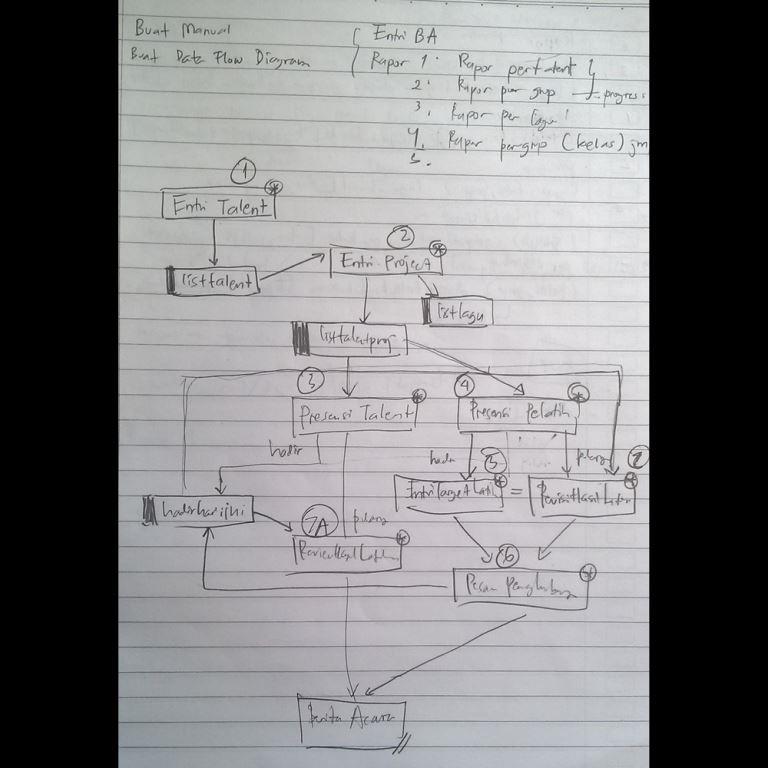 Buat Manual
Buat Data Flow Diagram
Entri BA
Rapor 1. Rapor per talent
2. Rapor per grup progress
3. Rapor per lagu
4. Rapor per grup (kelas)
5.
1
Entri Talent
listtalent
2
Entri Project
listlagu
listtalentproj
3
Presensi Talent
4
Presensi Pelatih
hadir
hadir
pulang
5
7
EntriTargetLatih
=
hadirhariini
7A
pulang
6
Pesan Penghubung
Berita Acara